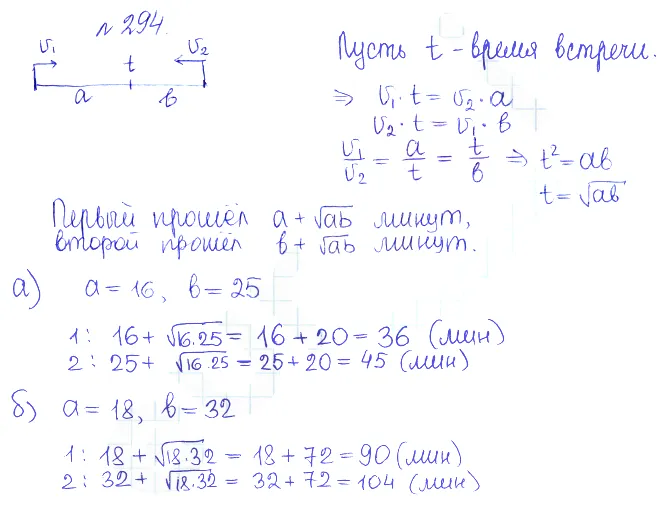 № 294.
v₁ t v₂
a b
Пусть t - время встречи.
⇒ v₁ · t = v₂ · a
v₂ · t = v₁ · b
v₁/v₂ = a/t = t/b ⇒ t² = ab
t = √ab
Первый прошёл a + √ab минут,
второй прошёл b + √ab минут.
а) a = 16, b = 25
1: 16 + √16·25 = 16 + 20 = 36 (мин)
2: 25 + √16·25 = 25 + 20 = 45 (мин)
б) a = 18, b = 32
1: 18 + √18·32 = 18 + 72 = 90 (мин)
2: 32 + √18·32 = 32 + 72 = 104 (мин)